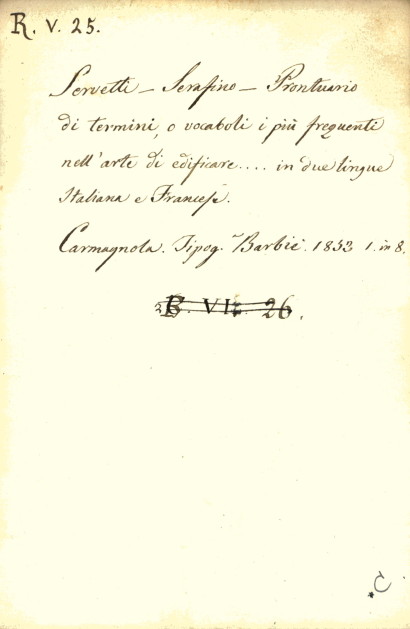 R. V. 25.
Servetti - Serafino - Prontuario
di termini, o vocaboli i più frequenti
nell'arte di edificare.... in due lingue
Italiana e Francese.
Carmagnola. Tipog. Barbiè. 1852 1. in 8.
26.
C